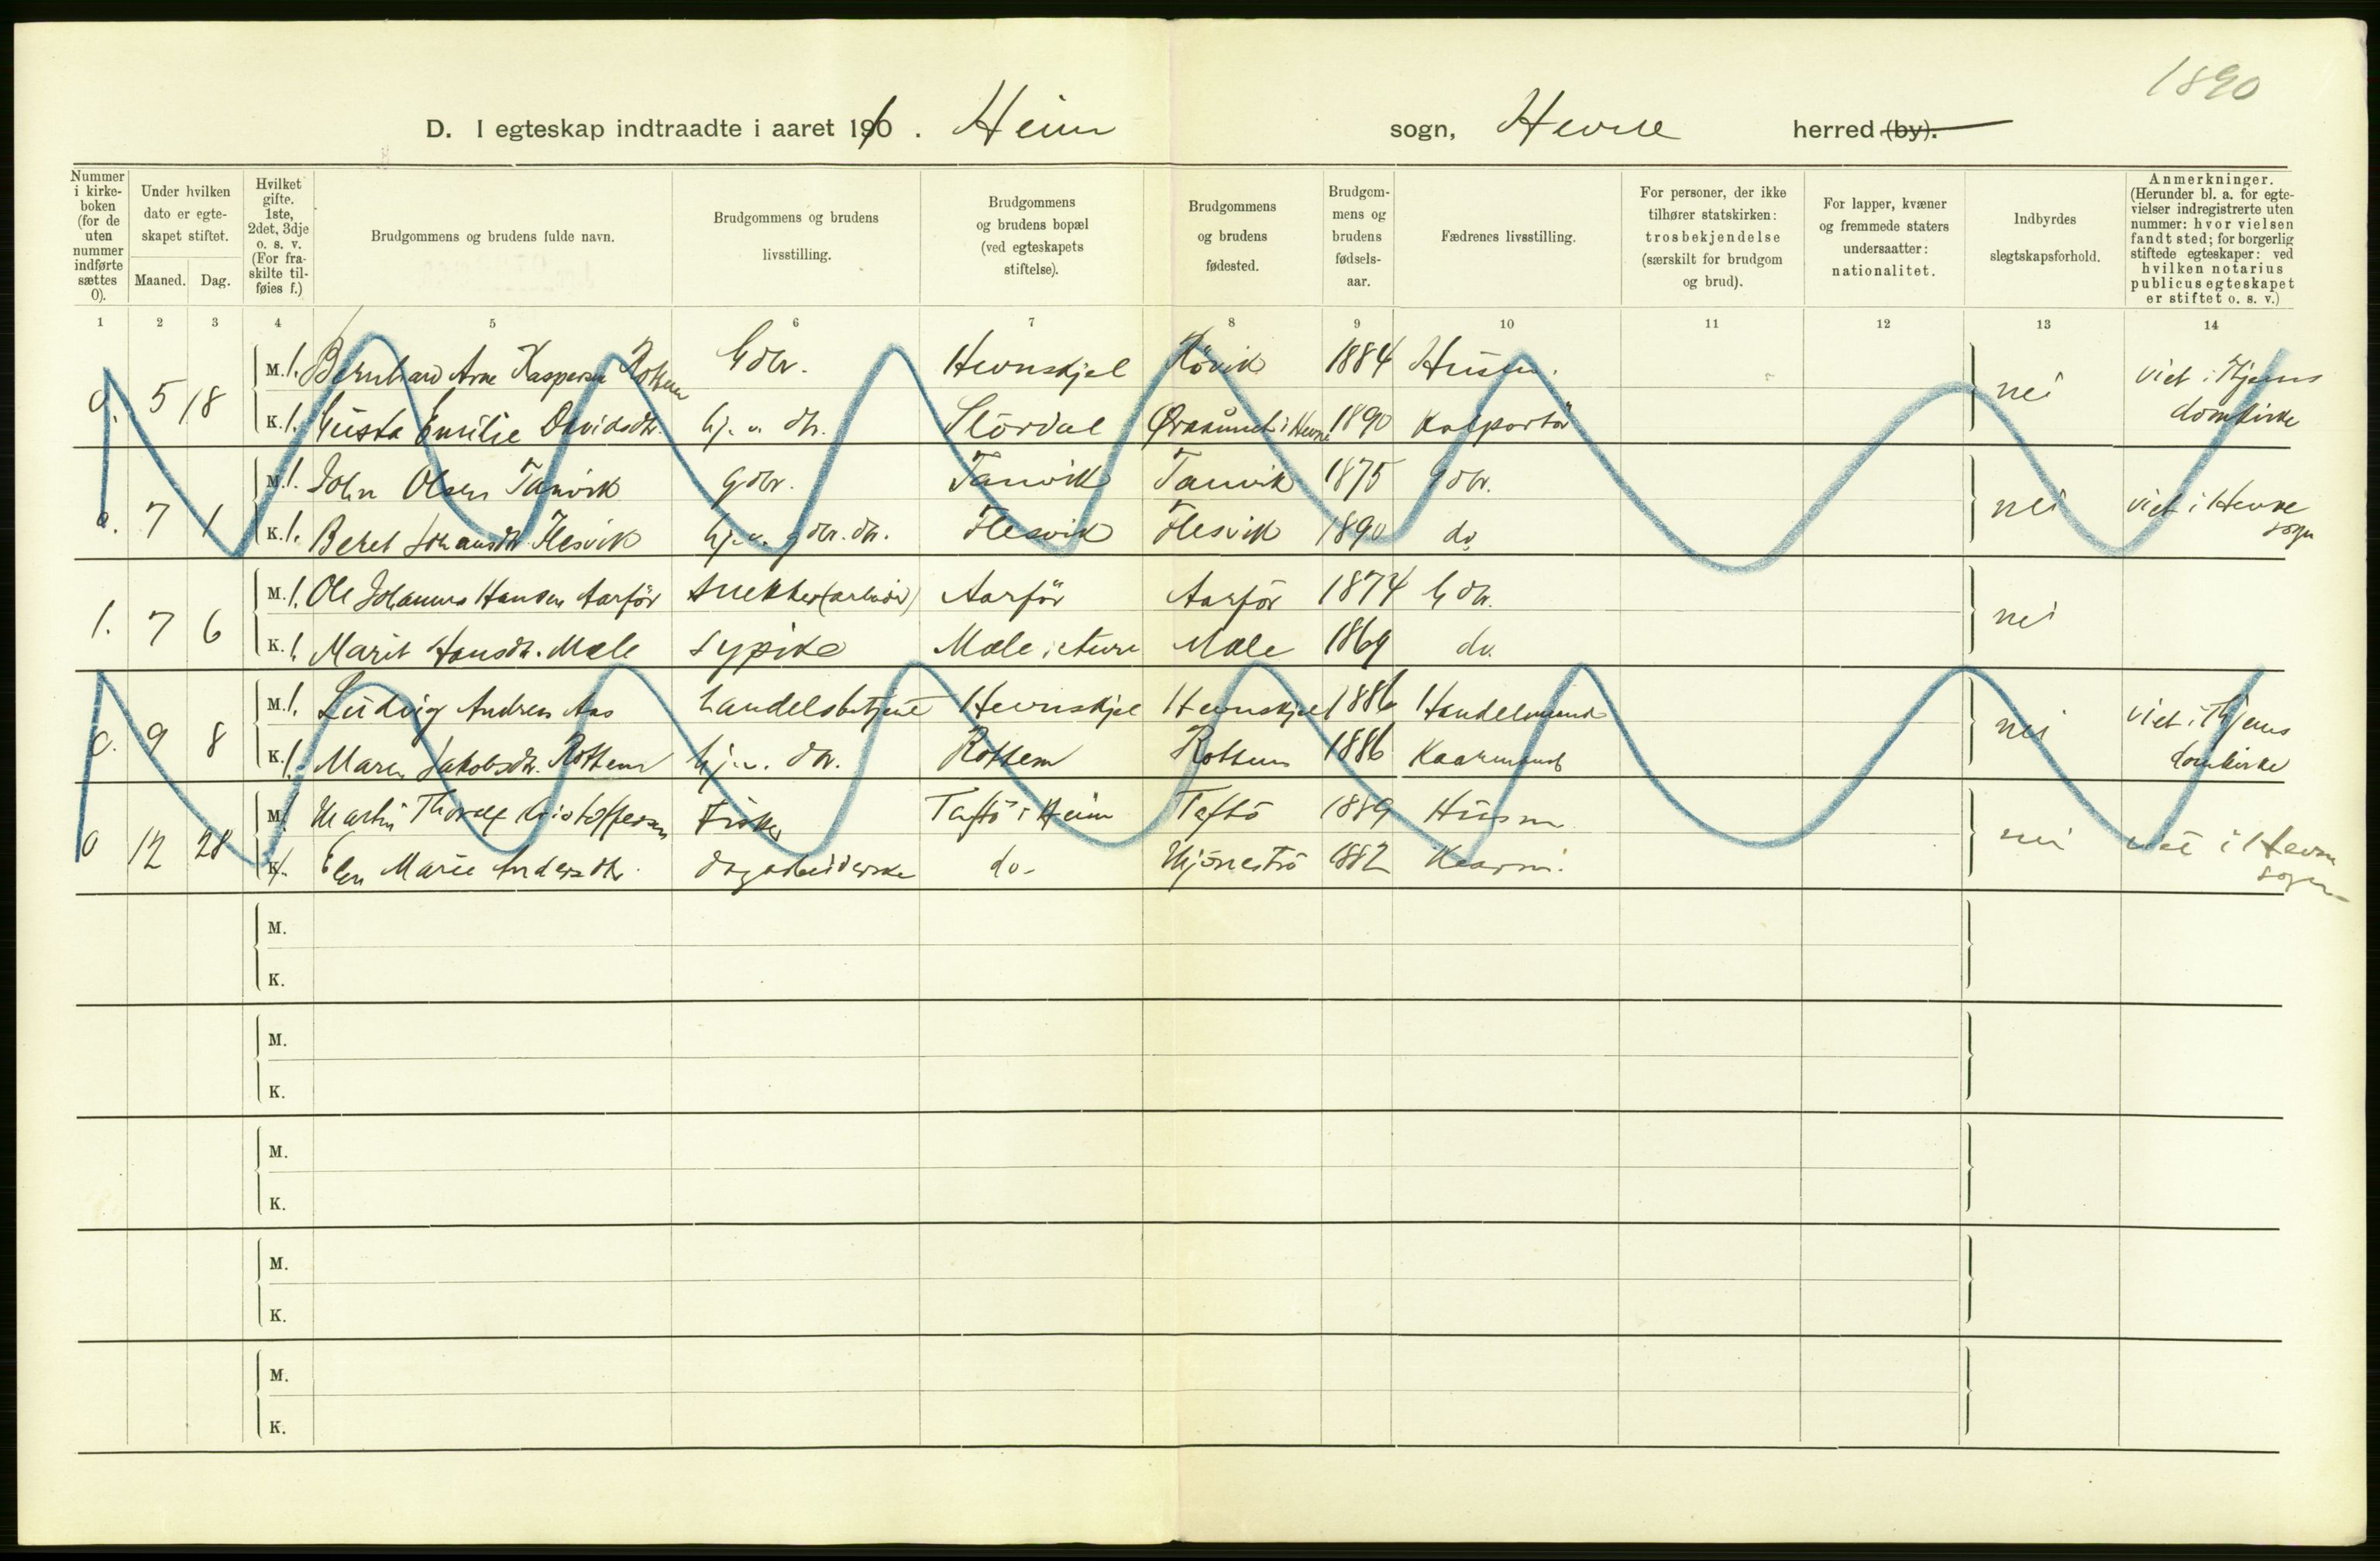 1890
D. I egteskap indtraadte i aaret 1910. Heim sogn, Hevne herred (by).
Nummer i kirke- boken (for de uten nummer indførte sættes 0).
Under hvilken dato er egte- skapet stiftet.
Maaned. Dag.
Hvilket gifte. 1ste, 2det, 3dje o. s. v. (For fra- skilte til- føies f.)
Brudgommens og brudens fulde navn.
Brudgommens og brudens livsstilling.
Brudgommens og brudens bopæl (ved egteskapets stiftelse).
Brudgommens og brudens fødested.
Brudgom- mens og brudens fødsels- aar.
Fædrenes livsstilling.
For personer, der ikke tilhører statskirken: trosbekjendelse (særskilt for brudgom og brud).
For lapper, kvæner og fremmede staters undersaatter: nationalitet.
Indbyrdes slegtskapsforhold.
Anmerkninger. (Herunder bl. a. for egte- vielser indregistrerte uten nummer: hvor vielsen fandt sted; for borgerlig stiftede egteskaper: ved hvilken notarius publicus egteskapet er stiftet o. s. v.)
1 2 3 4 5 6 7 8 9 10 11 12 13 14
0. 5 18 M. 1. Bernhard Arne Kaspersen Rottem Gbr. Hevnskjel Røvik 1884 Husm. nei viet i Trhjems domkirke
K. 1. Gusta Emilie Davidsdtr. hj. v. dtr. Stördal Ørsaunet i Hevne 1890 Kolportör
0. 7 1 M. 1. John Olsen Tanvik gbr. Tanvik Tanvik 1875 gbr. nei viet i Hevne sogn
K. 1. Beret Johansdtr. Flesvik hj. v. gbr. dtr. Flesvik Flesvik 1890 do
1. 7 6 M. 1. Ole Johannes Hansen Aarför snekker (arbeider) Aarför Aarför 1874 Gbr. nei
K. 1. Marit Hansdtr. Mæle sypike Mæle i Aure Mæle 1869 do.
0. 9 8 M. 1. Ludvig Andreas Aas handelsbetjent Hevnskjel Hevnskjel 1886 Handelsmand nei viet i Trhjems domkirke
K. 1. Maren Jakobsdtr. Rottem hj. v. dtr. Rottem Rottem 1886 Kaarmand
0 12 28 M. 1. Martin Thoralf Kristoffersen Fisker Taftö i Heim Taftö 1889 Husm nei viet i Hevne sogn
K. 1. Elen Marie Andersdtr. dagarbeiderske do. 1882 Kaarm.
M.
K.
M.
K.
M.
K.
M.
K.
M.
K.